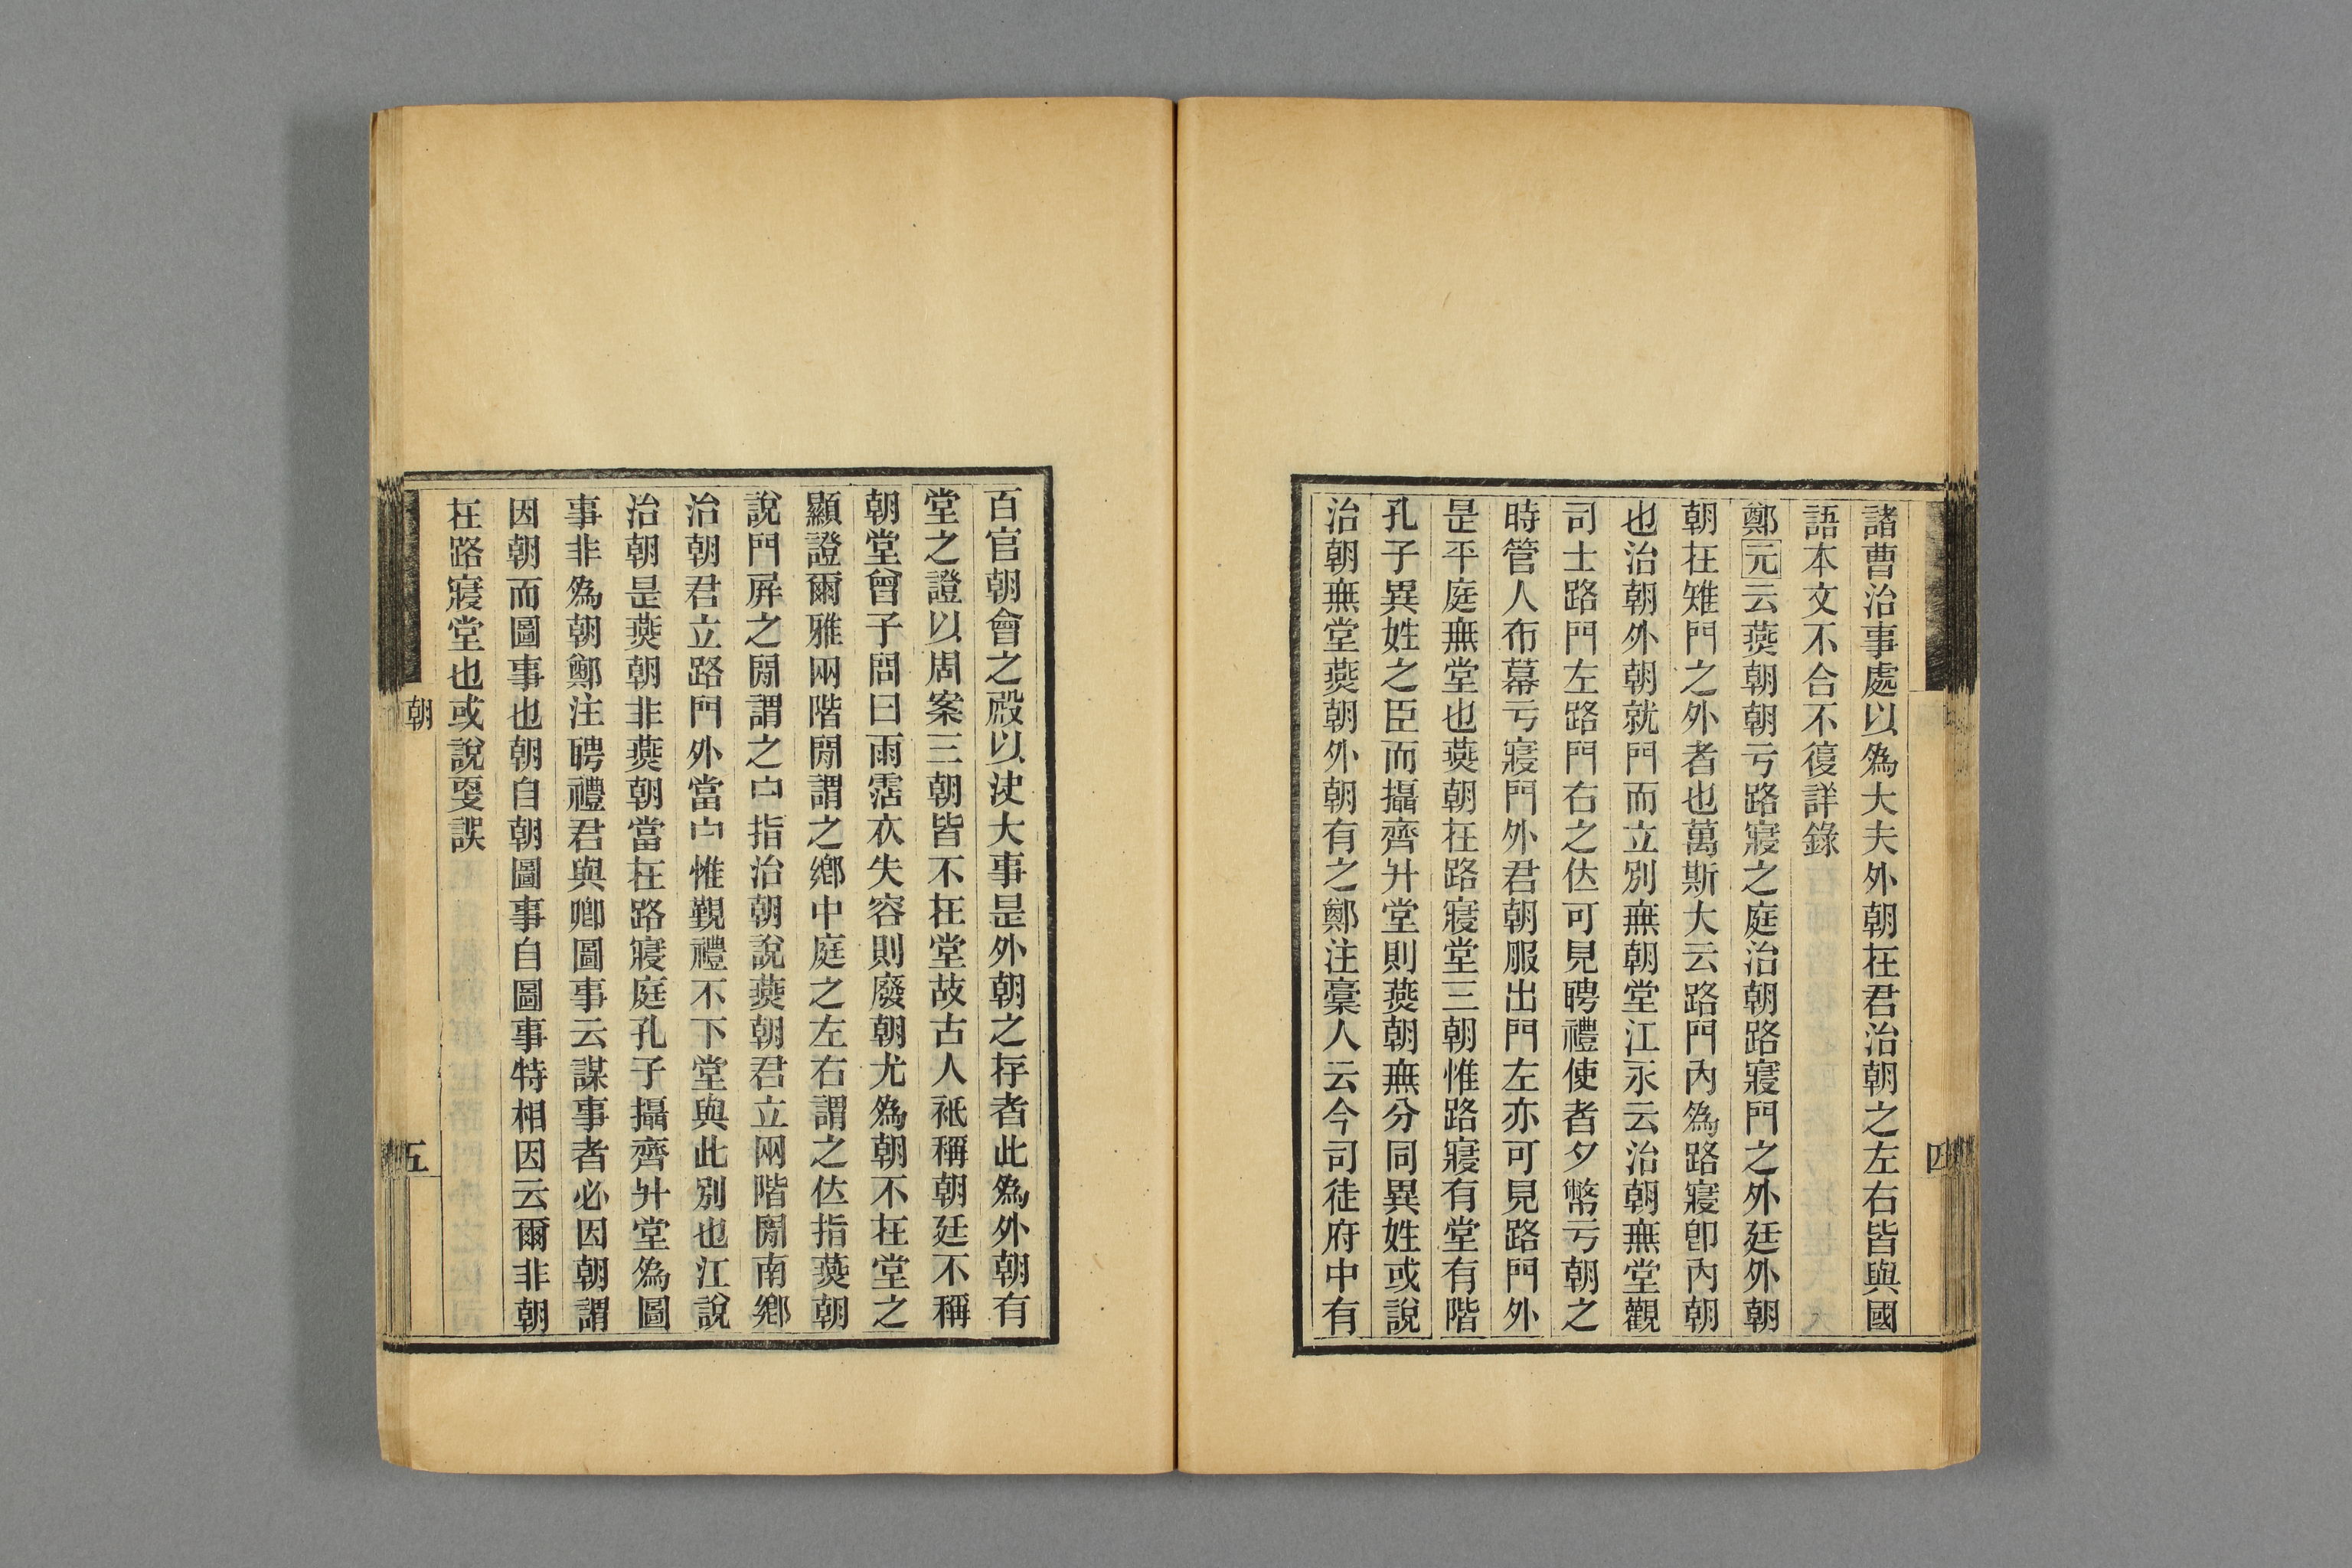 諸曹治事處以為大夫外朝在君治朝之左右皆與國
語本文不合不復詳錄
鄭元云燕朝朝亏路寢之庭治朝路寢門之外廷外朝
朝在雉門之外者也萬斯大云路門內為路寢卽內朝
也治朝外朝就門而立別無朝堂江永云治朝無堂觀
司士路門左路門右之位可見聘禮使者夕幣亏朝之
時管人布幕亏寢門外君朝服出門左亦可見路門外
是平庭無堂也燕朝在路寢堂三朝惟路寢有堂有階
孔子異姓之臣而攝齊升堂則燕朝無分同異姓或說
治朝無堂燕朝外朝有之鄭注稾人云今司徒府中有
四
百官朝會之殿以決大事是外朝之存者此為外朝有
堂之證以周案三朝皆不在堂故古人祇稱朝廷不稱
朝堂曾子問曰雨霑衣失容則廢朝尤為朝不在堂之
顯證爾雅兩階閒謂之鄉中庭之左右謂之位指燕朝
說門屏之閒謂之宁指治朝說燕朝君立兩階閒南鄉
治朝君立路門外當宁惟覲禮不下堂與此別也江說
治朝是燕朝非燕朝當在路寢庭孔子攝齊升堂為圖
事非為朝鄭注聘禮君與卿圖事云謀事者必因朝謂
因朝而圖事也朝自朝圖事自圖事特相因云爾非朝
在路寢堂也或說更誤
朝
五